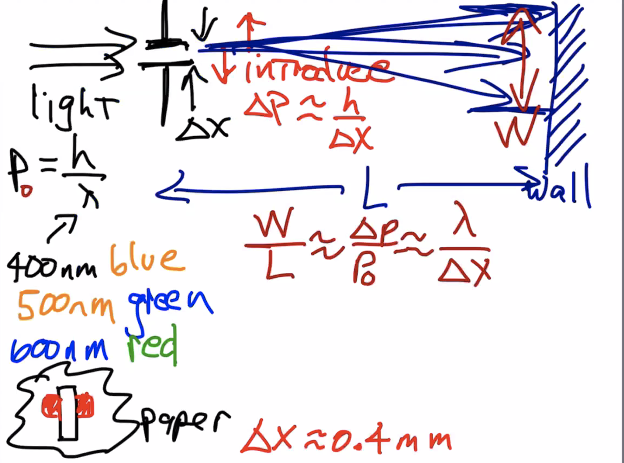 light
ΔX
introduce
ΔP ≈ h/ΔX
W
P₀ = h/λ
L
Wall
W/L ≈ ΔP/P₀ ≈ λ/ΔX
400nm blue
500nm green
600nm red
paper
ΔX ≈ 0.4 mm